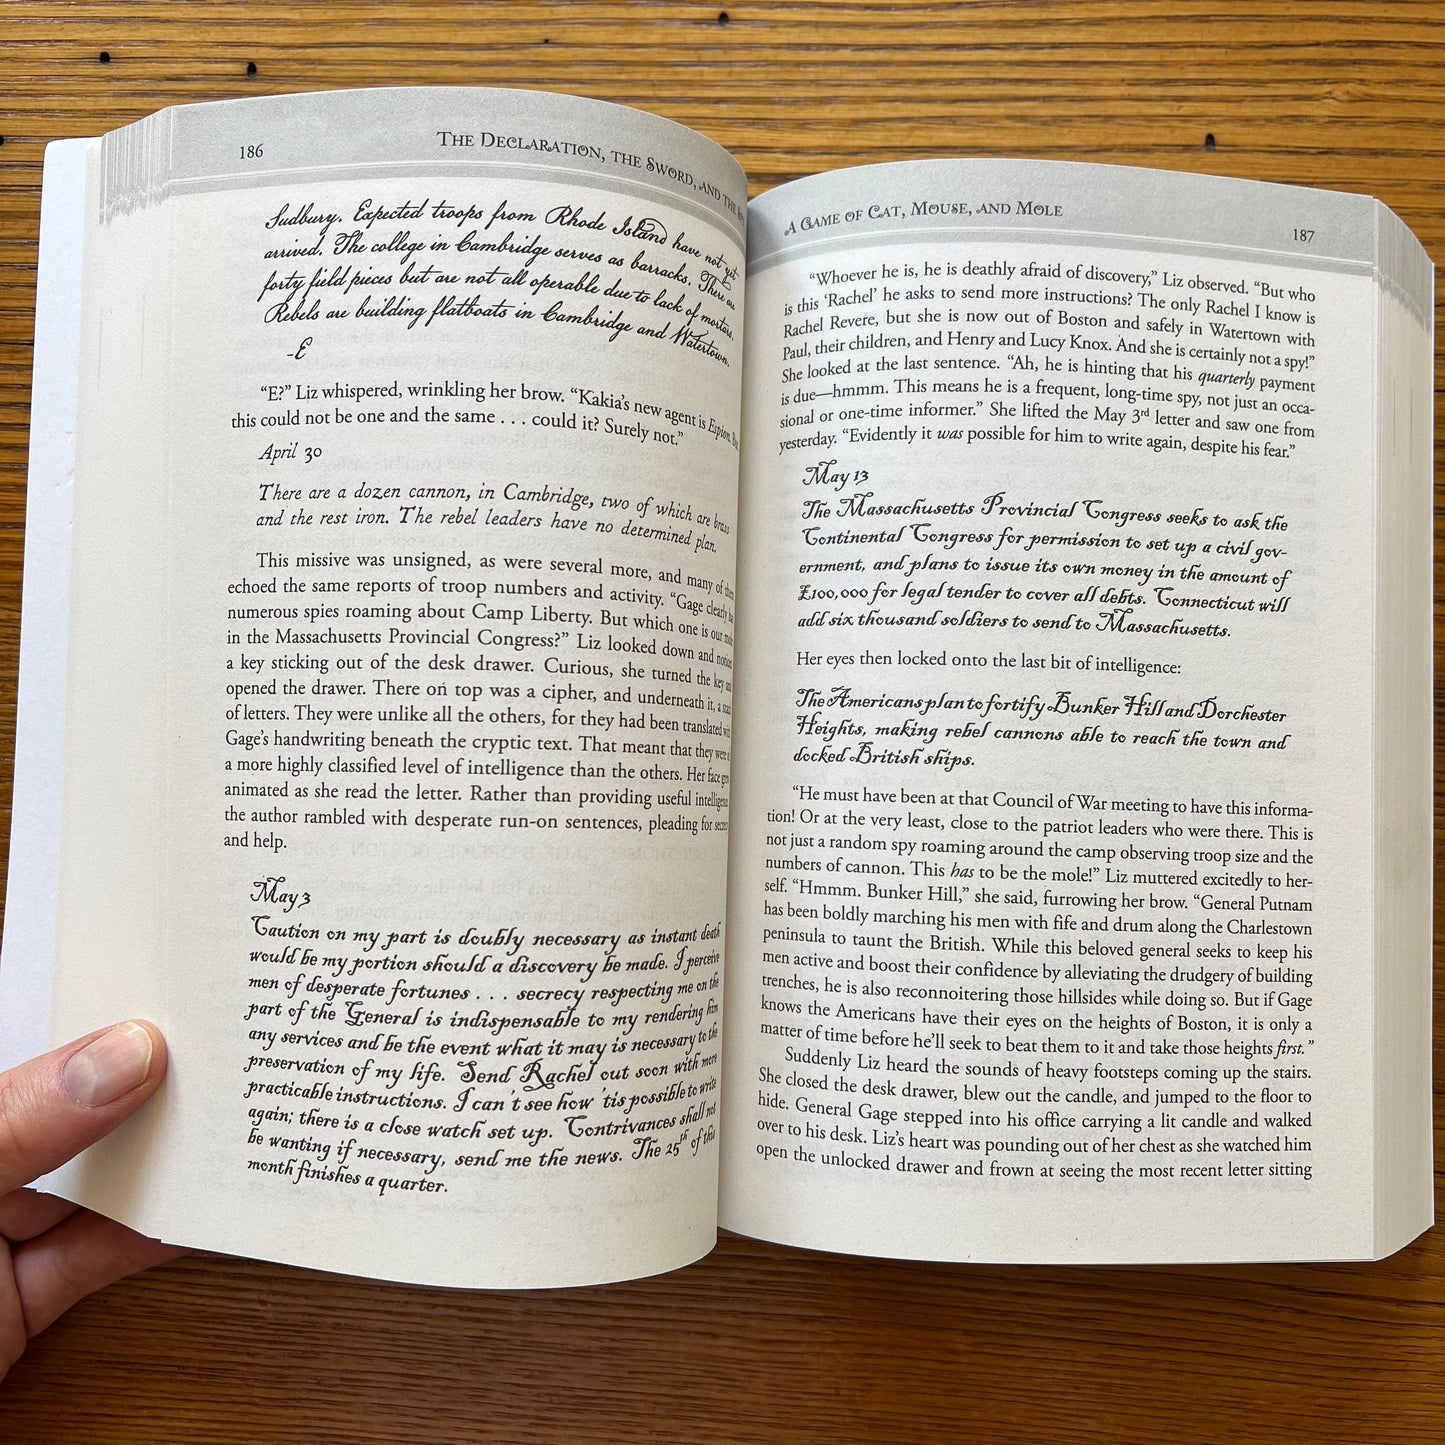 186
THE DECLARATION, THE SWORD, AND THE
Sudbury. Expected troops from Rhode Island have not yet
arrived. The college in Cambridge serves as barracks. There are
forty field pieces but are not all operable due to lack of mortars.
Rebels are building flatboats in Cambridge and Watertown.
-E
“E?” Liz whispered, wrinkling her brow. “Kakia’s new agent is Espion.
this could not be one and the same . . . could it? Surely not.”
April 30
There are a dozen cannon, in Cambridge, two of which are brass
and the rest iron. The rebel leaders have no determined plan.
This missive was unsigned, as were several more, and many of them
echoed the same reports of troop numbers and activity. “Gage clearly has
numerous spies roaming about Camp Liberty. But which one is our mole
in the Massachusetts Provincial Congress?” Liz looked down and noticed
a key sticking out of the desk drawer. Curious, she turned the key and
opened the drawer. There on top was a cipher, and underneath it, a stack
of letters. They were unlike all the others, for they had been translated with
Gage’s handwriting beneath the cryptic text. That meant that they were of
a more highly classified level of intelligence than the others. Her face grew
animated as she read the letter. Rather than providing useful intelligence
the author rambled with desperate run-on sentences, pleading for secrecy
and help.
May 3
Caution on my part is doubly necessary as instant death
would be my portion should a discovery be made. I perceive
men of desperate fortunes . . . secrecy respecting me on the
part of the General is indispensable to my rendering him
any services and be the event what it may is necessary to the
preservation of my life. Send Rachel out soon with more
practicable instructions. I can’t see how ’tis possible to write
again; there is a close watch set up. Contrivances shall not
be wanting if necessary, send me the news. The 25th of this
month finishes a quarter.
A GAME OF CAT, MOUSE, AND MOLE
187
“Whoever he is, he is deathly afraid of discovery,” Liz observed. “But who
is this ‘Rachel’ he asks to send more instructions? The only Rachel I know is
Rachel Revere, but she is now out of Boston and safely in Watertown with
Paul, their children, and Henry and Lucy Knox. And she is certainly not a spy!”
She looked at the last sentence. “Ah, he is hinting that his quarterly payment
is due—hmmm. This means he is a frequent, long-time spy, not just an occa-
sional or one-time informer.” She lifted the May 3rd letter and saw one from
yesterday. “Evidently it was possible for him to write again, despite his fear.”
May 13
The Massachusetts Provincial Congress seeks to ask the
Continental Congress for permission to set up a civil gov-
ernment, and plans to issue its own money in the amount of
£100,000 for legal tender to cover all debts. Connecticut will
add six thousand soldiers to send to Massachusetts.
Her eyes then locked onto the last bit of intelligence:
The Americans plan to fortify Bunker Hill and Dorchester
Heights, making rebel cannons able to reach the town and
docked British ships.
“He must have been at that Council of War meeting to have this informa-
tion! Or at the very least, close to the patriot leaders who were there. This is
not just a random spy roaming around the camp observing troop size and the
numbers of cannon. This has to be the mole!” Liz muttered excitedly to her-
self. “Hmmm. Bunker Hill,” she said, furrowing her brow. “General Putnam
has been boldly marching his men with fife and drum along the Charlestown
peninsula to taunt the British. While this beloved general seeks to keep his
men active and boost their confidence by alleviating the drudgery of building
trenches, he is also reconnoitering those hillsides while doing so. But if Gage
knows the Americans have their eyes on the heights of Boston, it is only a
matter of time before he’ll seek to beat them to it and take those heights first.”
Suddenly Liz heard the sounds of heavy footsteps coming up the stairs.
She closed the desk drawer, blew out the candle, and jumped to the floor to
hide. General Gage stepped into his office carrying a lit candle and walked
over to his desk. Liz’s heart was pounding out of her chest as she watched him
open the unlocked drawer and frown at seeing the most recent letter sitting